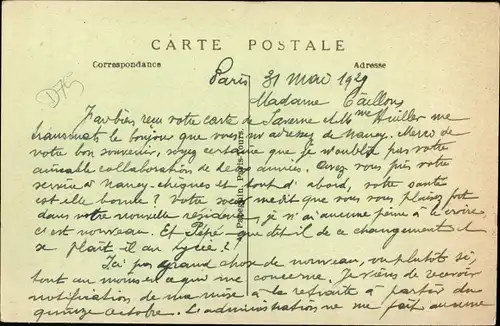 CARTE POSTALE
Correspondance
Adresse
D75
Paris 31 Mai 1929
Madame Taillou
J'ai bien reçu votre carte de Saverne et Mme Huiller me
transmet le bonjour que vous m'adressez de Nancy. Merci de
votre bon souvenir, soyez certaine que je n'oublie pas votre
aimable collaboration de deux années. Avez vous pris votre
service à Nancy-chèques et tout d'abord, votre santé
est elle bonne ? Votre me dit que vous vous plaisez fort
dans votre nouvelle résidence, je n'ai aucune peine à le croire,
c'est nouveau. Et Pépé que dit il de ce changement et
se plaît il au lycée ?
Ici pas grand chose de nouveau, ou plutôt si,
tout au moins en ce qui me concerne. Je viens de recevoir
notification de ma mise à la retraite à partir du
quinze octobre. L'administration ne me fait aucune